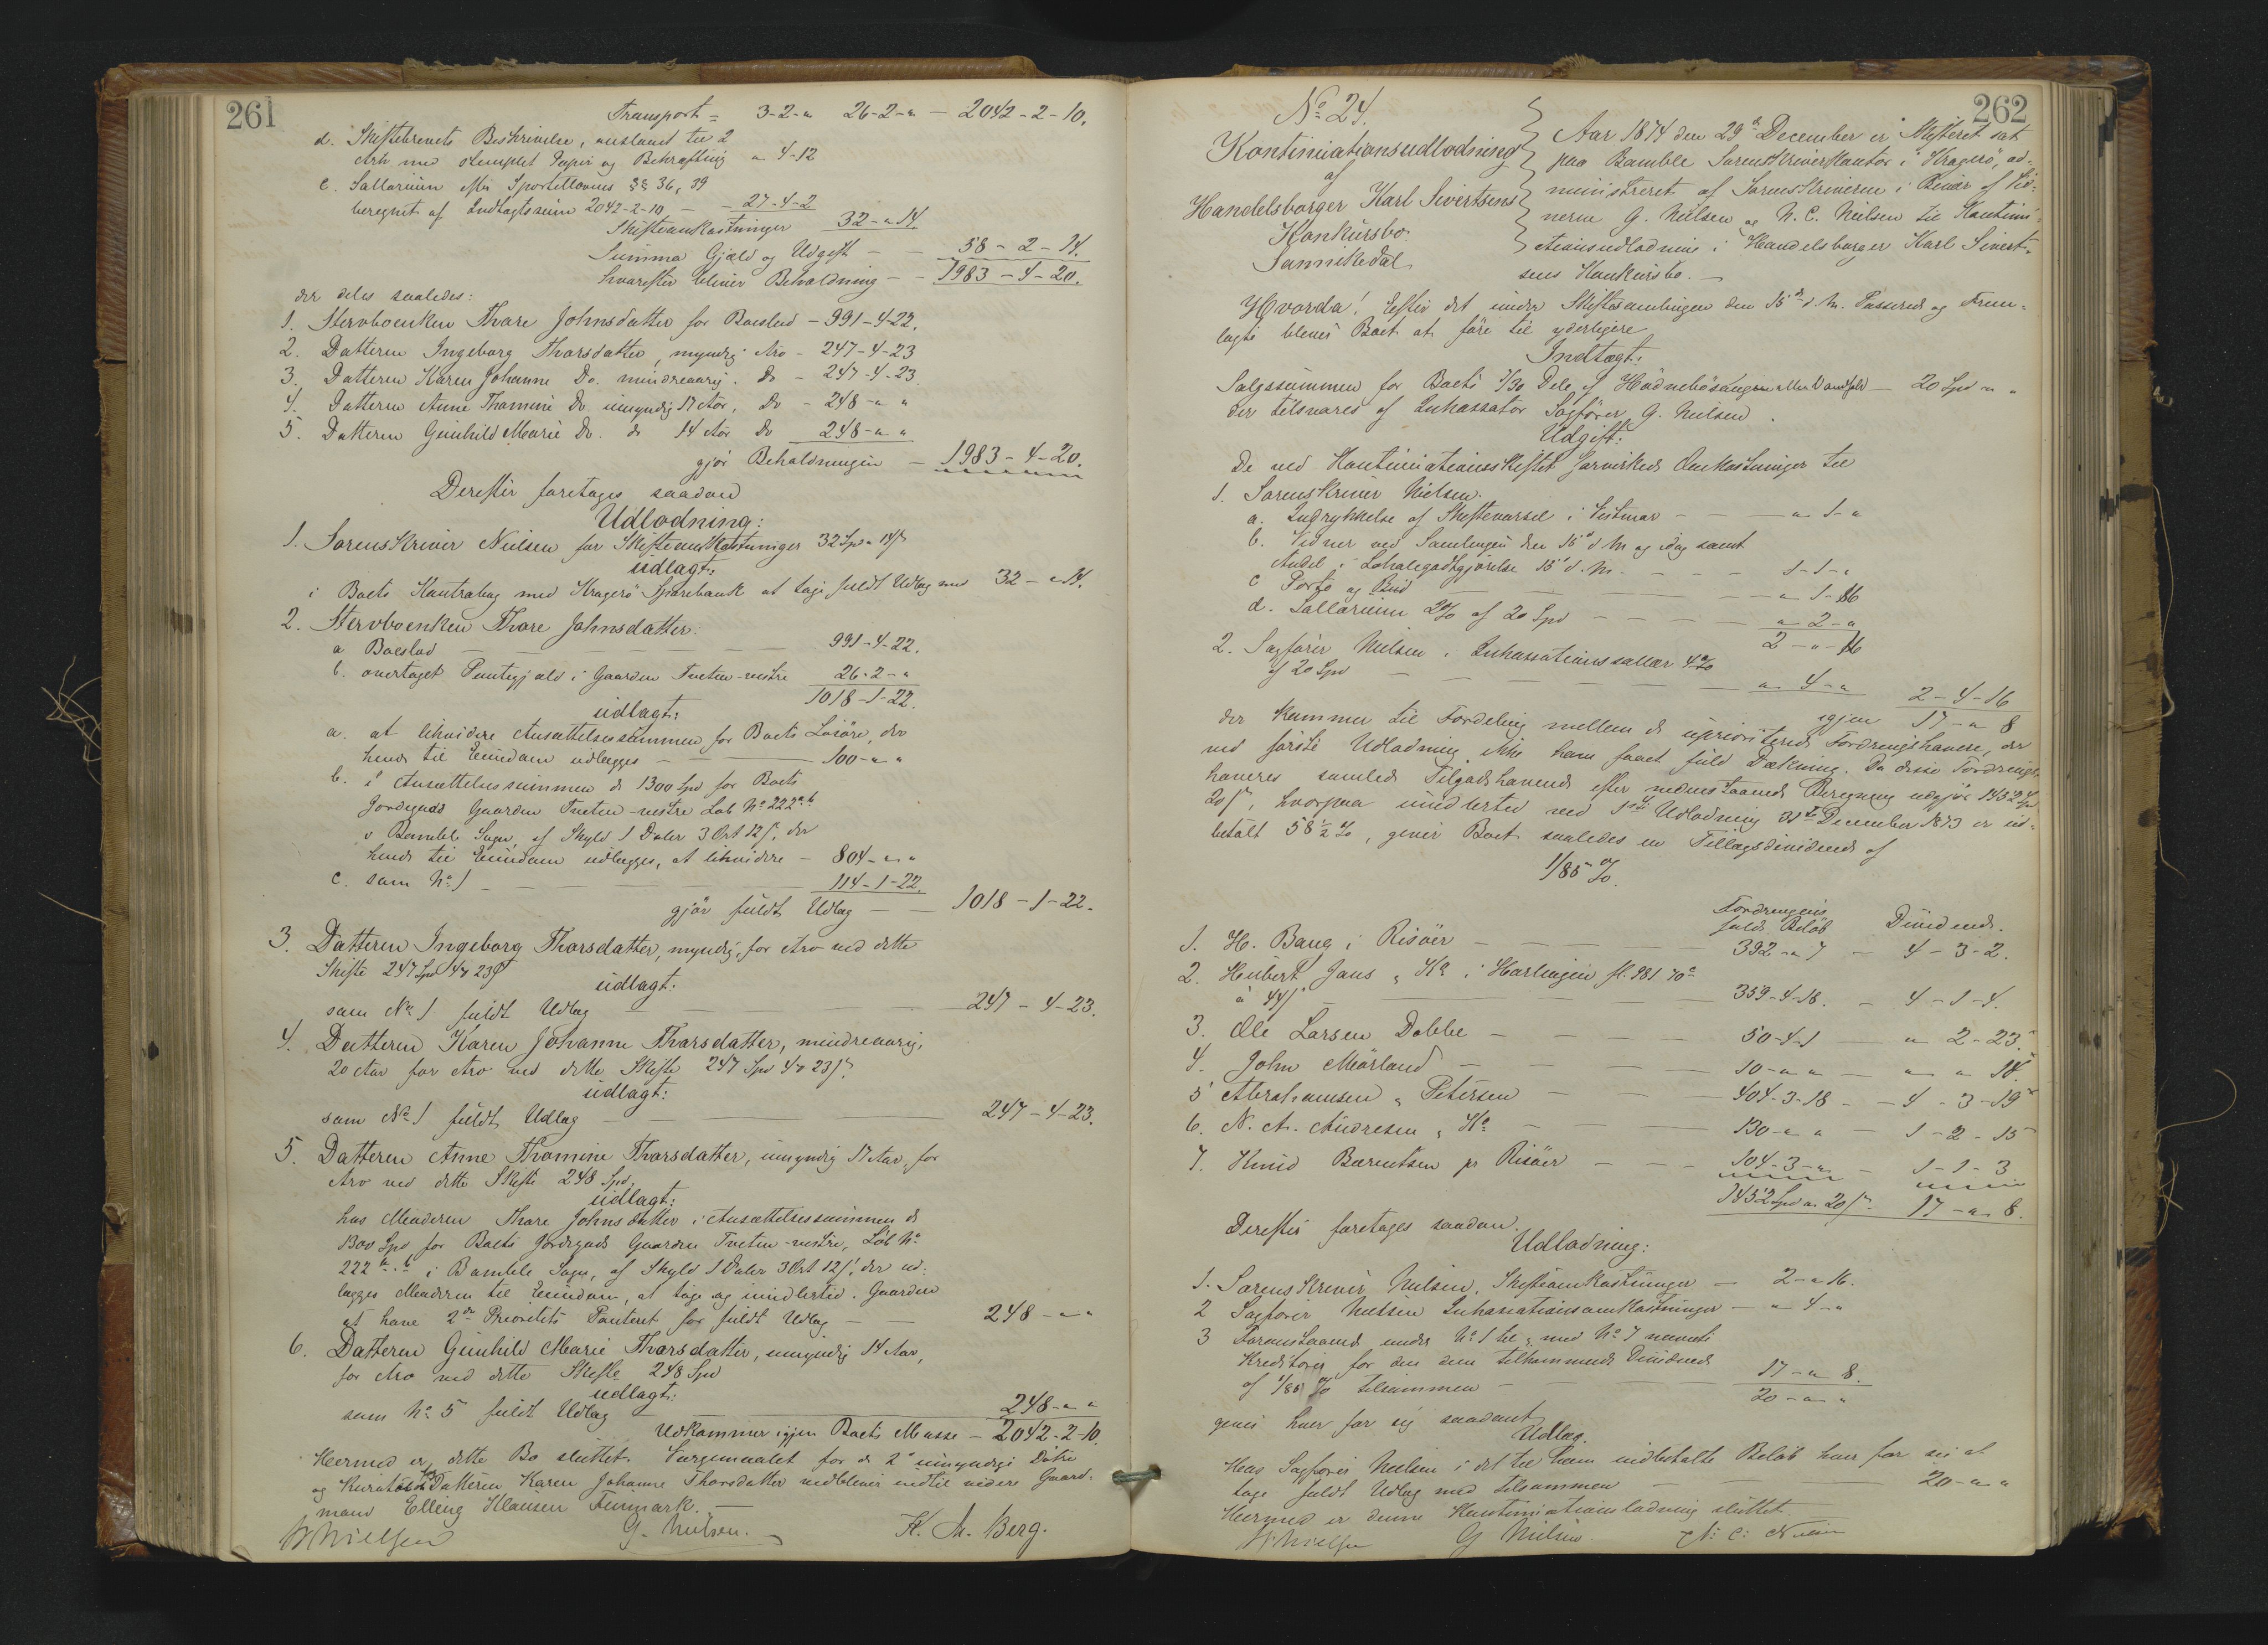 261
Transport = 3-2-" 26-2-" - 2042-2-10.
d. Skiftebrevets Beskrivelse, anslaaet til 2
Ark med stemplet Papir og Bekræftning " 4-12
e. Sallarium efter Sportellovens §§ 36, 39
beregnet af Indtægtssum 2042-2-10 - - 27-4-2
Skifteomkostninger 32-"-14.
Summa Gjæld og Udgift - - 58-2-14.
hvorefter bliver Beholdning - - 1983-4-20.
der deles saaledes:
1. Stervboenken Thore Johnsdatter for Boeslod - 991-4-22.
2. Datteren Ingeborg Thorsdatter, myndig Arv - 247-4-23
3. Datteren Karen Johanne Do. mindreaarig. do - 247-4-23
4. Datteren Anne Thomine Do umyndig 17 Aar, Do - 248-" "
5. Datteren Gunhild Marie Do. do 14 Aar Do 248-" "
gjør Beholdningen - 1983-4-20.
Derefter foretages saadan
Udlodning:
1. Sorenskriver Nielsen for Skifteomkostninger 32 Spd " 14 ß
udlagt:
i Boets Kontrabog med Kragerö Sparebank at tage fuldt Udlæg med 32-"-14.
2. Stervboenken Thore Johnsdatter:
a Boeslod - 991-4-22.
b. overtaget Pantegjæld i Gaarden Tveten-vestre 26-2-"
1018-1-22.
udlagt:
a. at likvidere Ansættelsessummen for Boets Løsöre, der
hende til Eiendom udlægges - 100-" "
b. i Ansættelsessummen de 1300 Spd for Boets
Jordegods Gaarden Tveten-vestre Løb No 222 a.b
i Bamble Sogn, af Skyld 1 Daler 3 Ort 12 ß, der
hende til Eiendom udlægges, at likvidere - 804-" "
c. som No 1 - 114-1-22.
gjör fuldt Udlæg - - 1018-1-22.
3. Datteren Ingeborg Thorsdatter, myndig, for Arv ved dette
Skifte 247 Spd 4 " 23 ß
udlagt:
som No 1 fuldt Udlæg - 247-4-23.
4. Datteren Karen Johanne Thorsdatter, mindreaarig,
20 Aar for Arv ved dette Skifte 247 Spd 4 " 23 ß.
udlagt:
som No 1 fuldt Udlæg - 247-4-23.
5. Datteren Anne Thomine Thorsdatter, umyndig 17 Aar, for
Arv ved dette Skifte 248 Spd.
udlagt:
hos Moderen Thore Johnsdatter i Ansættelsessummen de
1300 Spd for Boets Jordegods Gaarden Tveten-vestre, Löb No
222 a.b i Bamble Sogn, af Skyld 1 Daler 3 Ort 12 ß, der ud-
lægges Moderen til Eiendom, at tage og imidlertid i Gaarden
at have 2den Prioritets Panteret for fuldt Udlæg - - 248-" "
6. Datteren Gunhild Marie Thorsdatter, umyndig 14 Aar,
for Arv ved dette Skifte 248 Spd
udlagt:
som No 5 fuldt Udlæg - 248-" "
Udkommer igjen Boets Masse - 2042-2-10.
Hermed er dette Bo sluttet. Værgemaalet for de 2 umyndige Døtre
og Kuratelet for Datteren Karen Johanne Thorsdatter vedbliver indtil videre Gaard-
mand Elling Klausen Finmark. -
Nielsen G. Nielsen. K. M. Berg.
262
No 24.
Kontinuationsudlodning
af
Handelsborger Karl Sivertsens
Konkursbo.
Sannikedal
Aar 1874 den 29de December er Skifteret sat
paa Bamble Sorenskriverkontor i Kragerö, ad-
ministreret af Sorenskriveren i Bivær af Vid-
nerne G. Nielsen og N. C. Nielsen til Kontinu-
ationsudlodning i Handelsborger Karl Sivert-
sens Konkursbo. -
Hvorda! Efter det under Skiftesamlingen den 15de d. M. Passerede og Frem-
lagte blever Boet at före til yderligere
Indtægt:
Salgssummen for Boets 7/30 Dele af Hödnebösangen eller Vandfald - 20 Spd " "
der tilsvares af Inkassator Sagförer G. Nielsen.
Udgift:
De ved Kontinuationsskiftet forvirkede Omkostninger til
1. Sorenskriver Nielsen.
a. Indrykkelse af Skiftevarsel i Vestmar - - " 1-"
b. Vidner ved Samlingen den 15de d. M. og idag samt
Andel i Lokalegodtgjörelse 15de d. M. - - - 1-1-"
c Porto og Bud - " 1-16
d. Sallarium 2% af 20 Spd - - - - " 2-"
2-"-16
2. Sagförer Nielsen i Inkassationssallær 4%
af 20 Spd - " 4-" 2-4-16
igjen 17-" 8
der kommer til Fordeling mellem de uprioriterede Fordringshavere, der
ved förste Udlodning ikke have faaet fuld Dækning. Da disse Fordrings-
haveres samlede Tilgodehavende efter nedenstaaende Beregning udgjör 1452 Spd
20 ß, hvorpaa imidlertid ved 1ste Udlodning 31te December 1873 er ud-
betalt 58½ %, giver Boet saaledes en Tillægsdividende af
1/85 %.
Fordringens
fulde Belöb Dividende.
1. H. Bang i Risöer - 392-" 7 - 4-3-2.
2. Hubert Jans & Ko i Harlingen fl. 981 70 c
à 44 ß - 359-4-18. - 4-1-4.
3. Ole Larsen Dobbe - 50-4-1 - " 2-23.
4. John Mörland - 10-" " - " " 14.
5 Abrahamsen & Petersen - 404-3-18 - - 4-3-19
6. N. A. Andresen & Ko - 130-" " - 1-2-15
7. Knud Berntsen pr Risöer - - - 104-3-" - 1-1-3
1452 Spd " 20 ß. 17-" 8.
Derefter foretages saadan
Udlodning:
1. Sorenskriver Nielsen, Skifteomkostninger - 2-" 16.
2 Sagförer Nielsen Inkassationsomkostninger - " 4-"
3 Foranstaaende under No 1 til & med No 7 nævnte
Kreditorer for den dem tilkommende Dividende
af 1/85 % tilsammen - 17-" 8.
20-" "
gives hver for sig saadant
Udlæg.
Hos Sagförer Nielsen i det til ham indbetalte Belöb hver for sig at
tage fuldt Udlæg med tilsammen - 20-" "
Hermed er denne Kontinuationslodning sluttet.
Nielsen G Nielsen. N: C: Nielsen